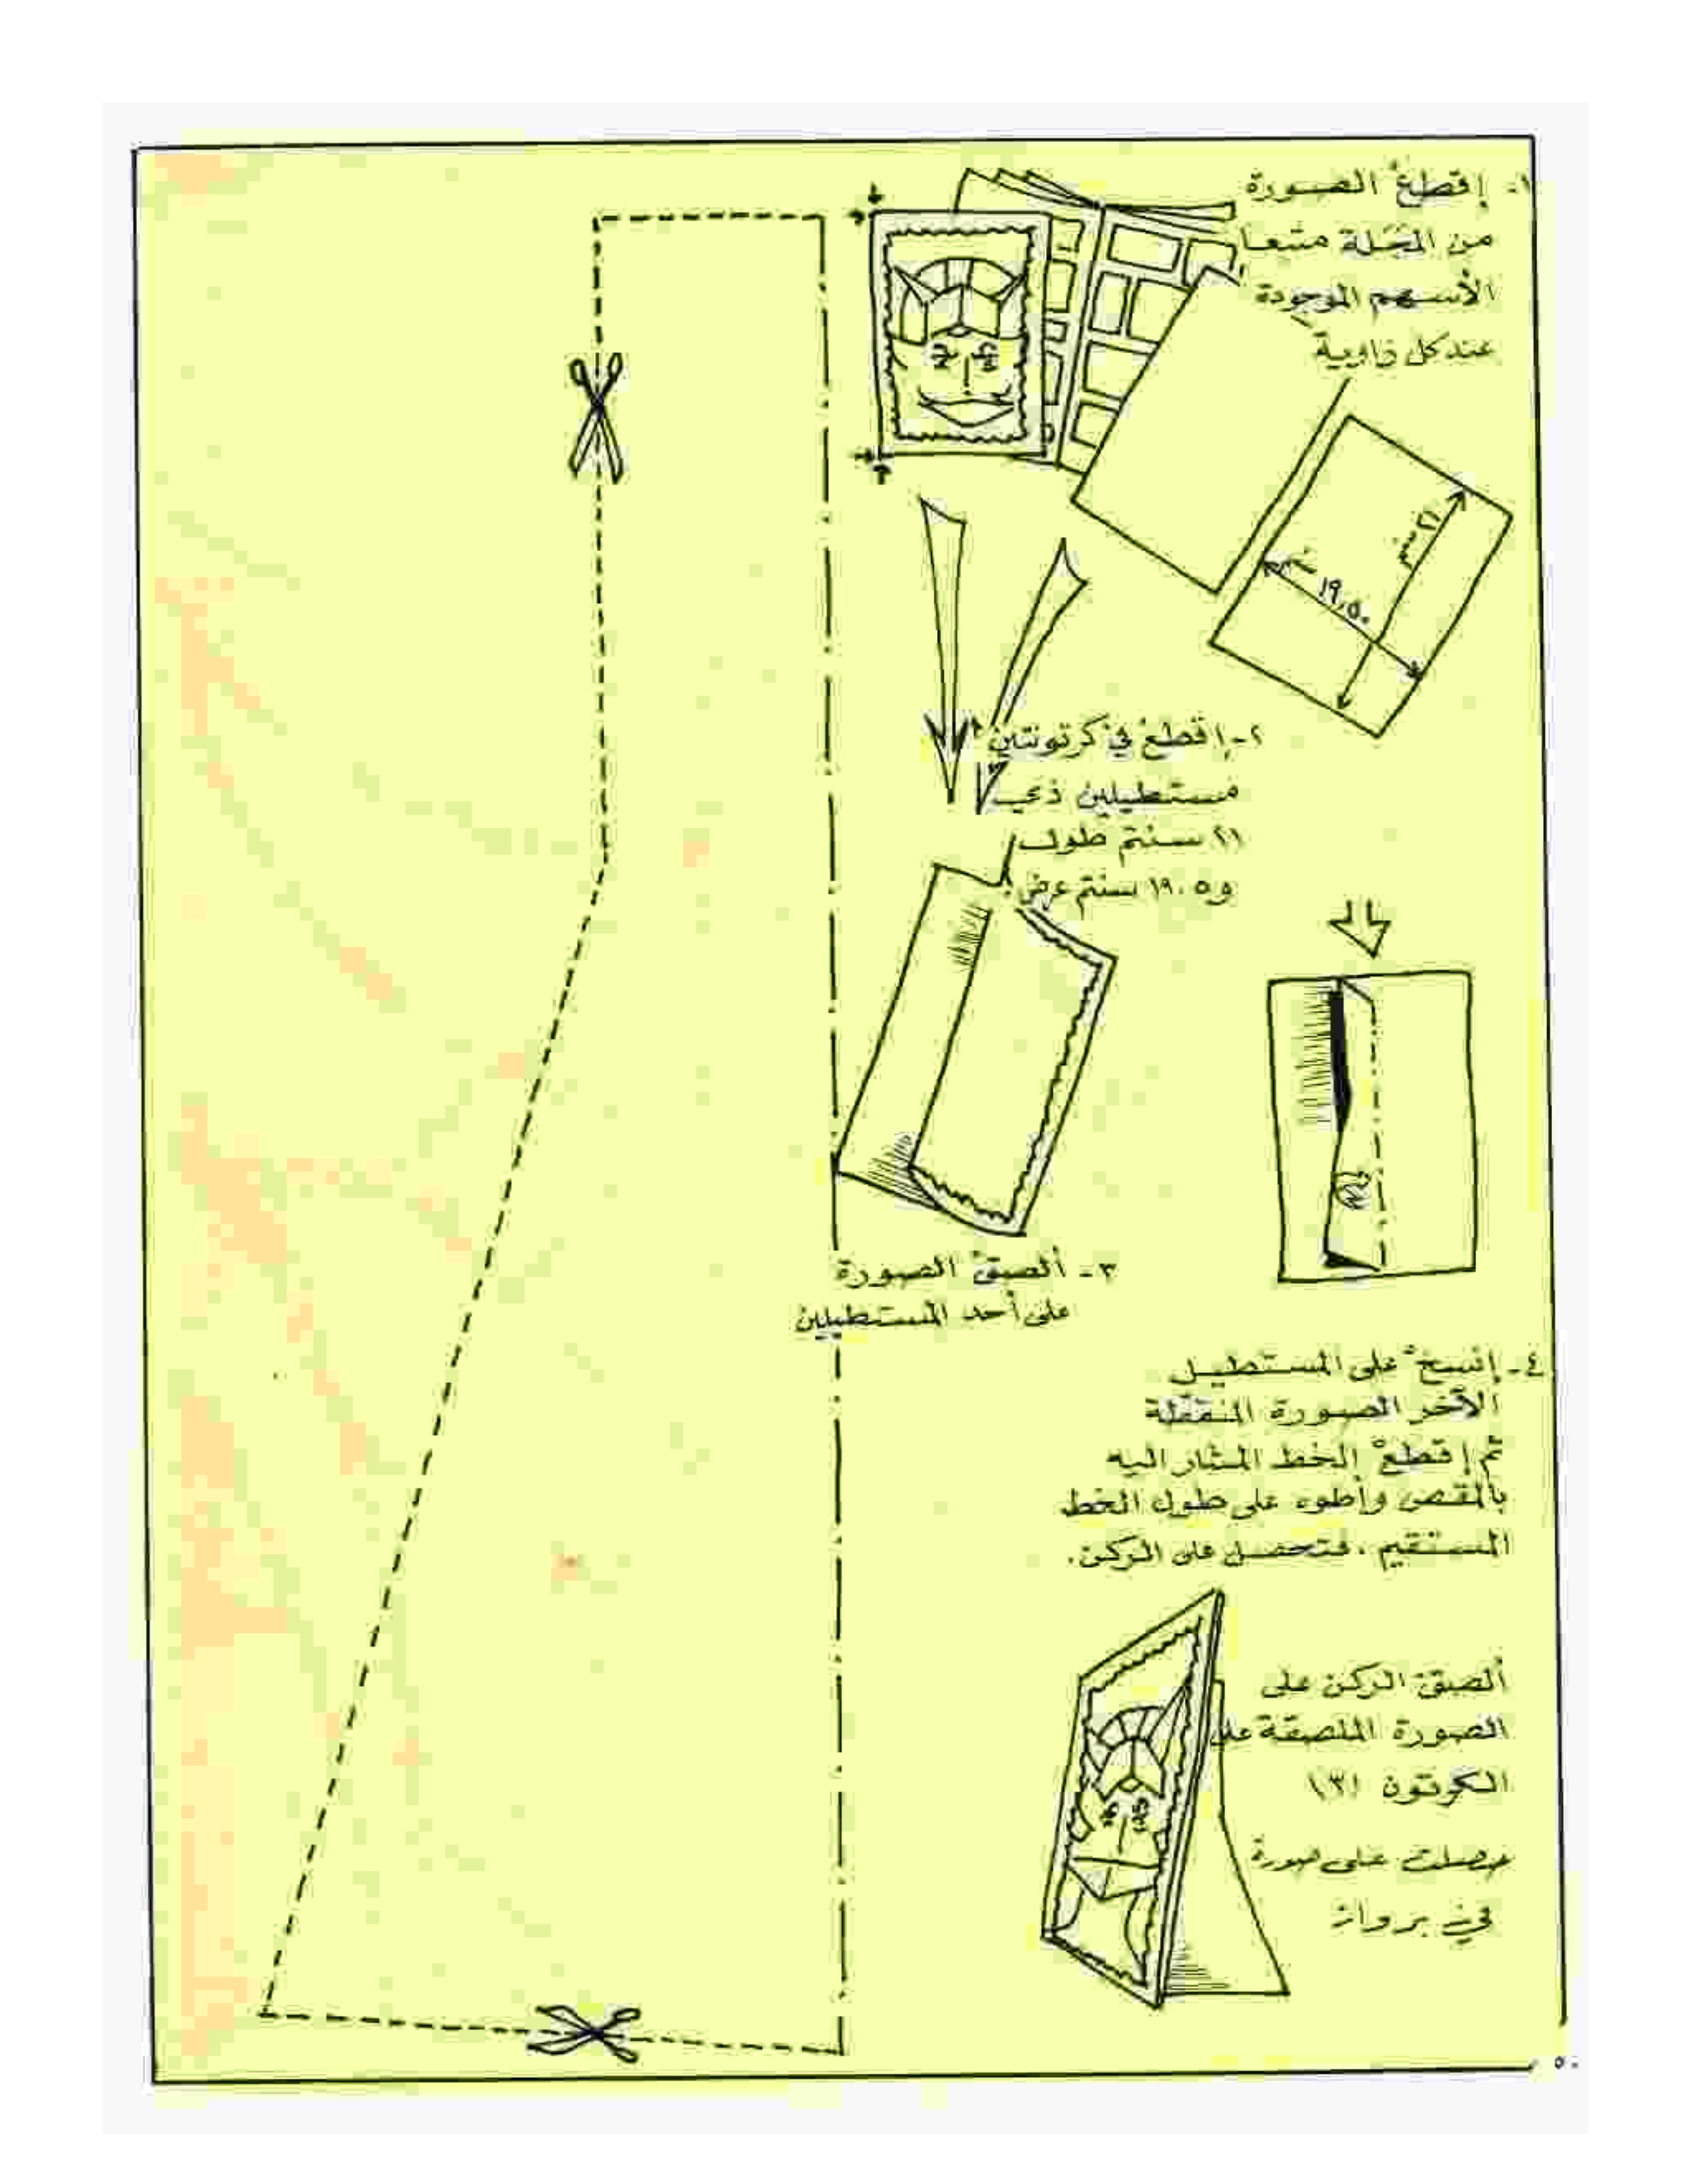 ١- إقطعْ الصورة
من المجَلة متبعا
الأسهم الموجودة
عند كل زاوية
٢١ سنتم
١٩,٥٠ سنتم
٢- إقطعْ في كرتونتين
مستطيلين ذي
٢١ سنتم طول
و١٩.٥ سنتم عرض
٣- ألصقْ الصورة
على أحد المستطيلين
٤- إنسخْ على المستطيل
الآخر الصورة المنقطة
ثم إقطعْ الخط المشار اليه
بالمقص وأطوه على طول الخط
المستقيم . فتحصل على الركن .
ألصق الركن على
الصورة الملصقة على
الكرتون (٣)
حصلت على صورة
في برواز
٥٠